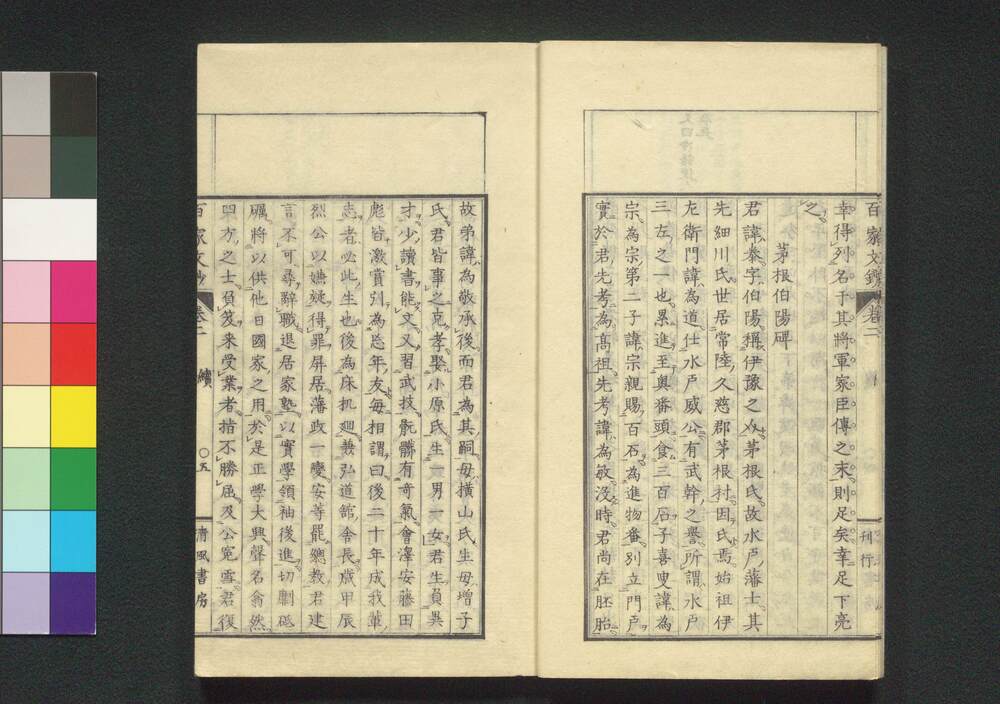 百家文鈔 卷二
幸得列名于其將軍家臣傳之末則足矣幸足下亮
之
茅根伯陽碑
君諱泰字伯陽稱伊豫之介茅根氏故水戶藩士其
先細川氏世居常陸久慈郡茅根村因氏焉始祖伊
左衛門諱為道仕水戶威公有武幹之譽所謂水戶
三左之一也累進至輿番頭食三百石子喜叟諱為
宗為宗第二子諱宗親賜百石為進物番別立門戶
實於君先考為高祖先考諱為敏沒時君尚在胚胎
刊行
故弟諱為敬承後而君為其嗣母橫山氏生母增子
氏君皆事之克孝娶小原氏生一男一女君生負異
才少讀書能文又習武技骯髒有奇氣會澤安藤田
彪皆激賞別為忘年友每相謂曰後二十年成我輩
志者必此生也後為床机廻兼弘道館舍長歲甲辰
烈公以嫌疑得罪屏居藩政一變安等罷總教君建
言不可尋辭職退居家塾以實學領袖後進切劘砥
礪將以供他日國家之用於是正學大興聲名翕然
四方之士負笈来受業者指不勝屈及公冤雪君復
百家文鈔 卷二 續 〇五 清風書房